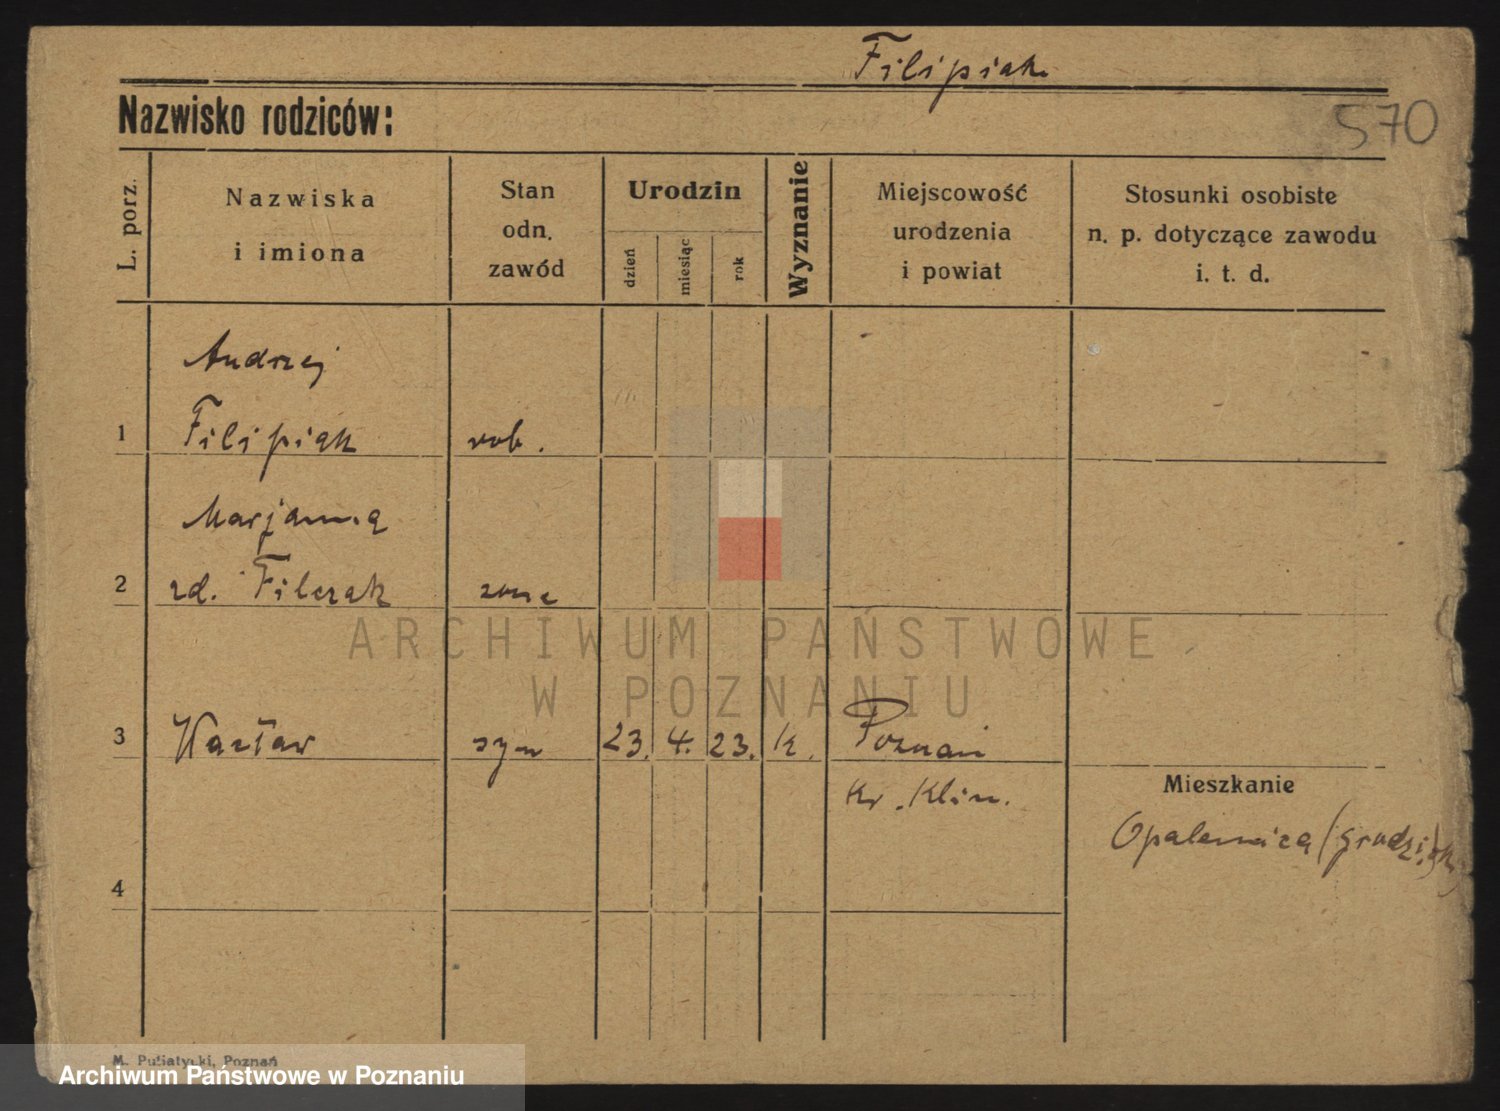 Filipiak
Nazwisko rodziców:
570
L. porz.
Nazwiska
i imiona
Stan
odn.
zawód
Urodzin
dzień
miesiąc
rok
Wyznanie
Miejscowość
urodzenia
i powiat
Stosunki osobiste
n. p. dotyczące zawodu
i. t. d.
Andrzej
1 Filipiak rob.
Marjanna
2 zd. Filczak żona
ARCHIWUM PAŃSTWOWE
W POZNANIU
3 Wacław syn 23. 4. 23. k. Poznań
Kr. Klin.
Mieszkanie
Opalenica (grodzisk)
4
Poznań
Archiwum Państwowe w Poznaniu